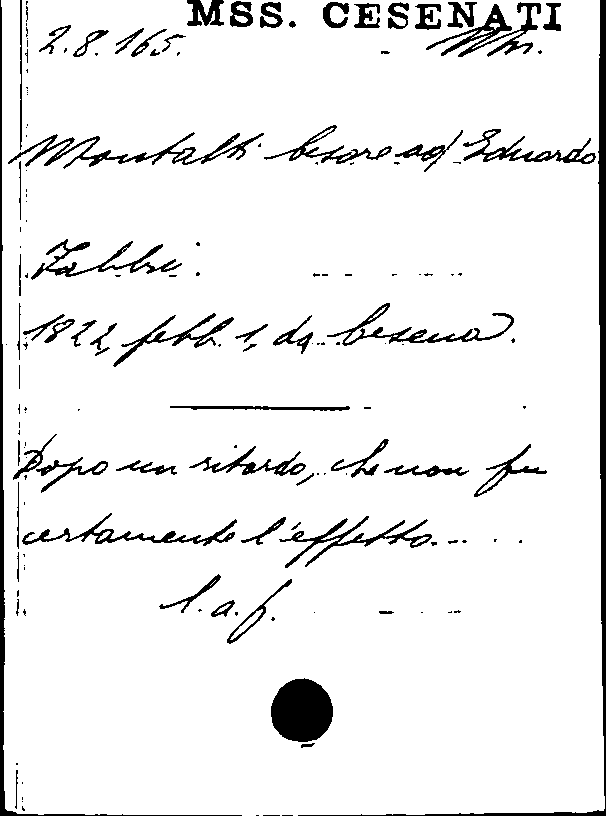 MSS. CESENATI
2.8.165.
Montalti Cesare ad Eduardo
Fabbri.
1822, febb. 1, da Cesena.
Dopo un ritardo, che non fu
certamente l'effetto.....
l.a.f.